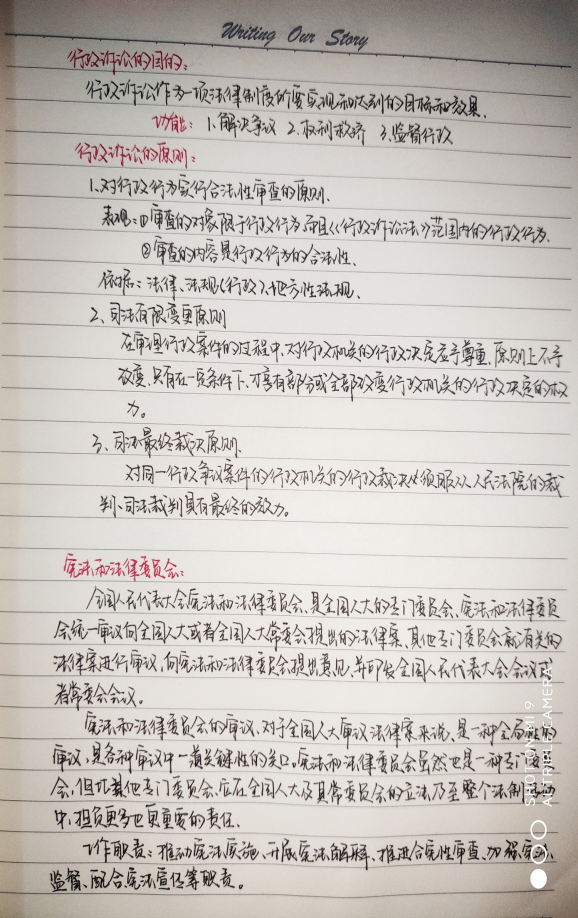 Writing Our Story
行政诉讼的目的：
行政诉讼作为一项法律制度所要实现和达到的目标和效果.
功能：1.解决争议 2.权利救济 3.监督行政
行政诉讼的原则：
1.对行政行为实行合法性审查的原则.
表现：①审查的对象限于行政行为而且《行政诉讼法》范围内的行政行为.
②审查的内容是行政行为的合法性.
依据：法律、法规(行政)、地方性法规.
2、司法有限变更原则
在审理行政案件的过程中,对行政机关的行政决定应予尊重,原则上不予
改变,只有在一定条件下,才享有部分或全部改变行政机关的行政决定的权
力。
3、司法最终裁决原则.
对同一行政争议案件的行政机关的行政裁决必须服从人民法院的裁
判、司法裁判具有最终的效力。
宪法和法律委员会：
全国人民代表大会宪法和法律委员会、是全国人大的专门委员会、宪法和法律委员
会统一审议向全国人大或者全国人大常委会提出的法律案、其他专门委员会就有关的
法律案进行审议、向宪法和法律委员会提出意见、并印发全国人民代表大会会议或
者常委会会议。
宪法和法律委员会的审议、对于全国人大审议法律案来说、是一种全局性的
审议,是各种审议中一道关键性的关口。宪法和法律委员会虽然也是一种专门委员
会,但比其他专门委员会,应在全国人大及其常委员会的立法乃至整个法制活动
中,担负更多也更重要的责任.
工作职责：推动宪法实施、开展宪法解释、推进合宪性审查、加强宪法
监督、配合宪法宣传等职责。
SHOT ON MI 9
AI TRIPLE CAMERA